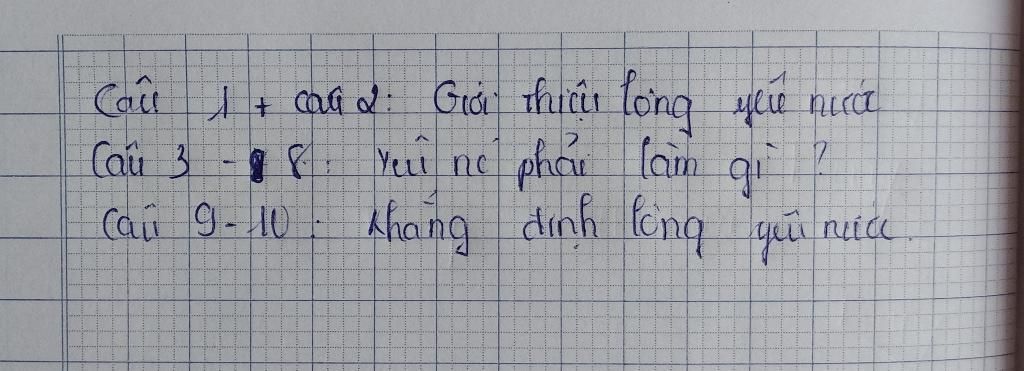 Câu 1 + câu 2: Giới thiệu lòng yêu nước
Câu 3 - 8: Yêu nc phải làm gì?
Câu 9-10: Khẳng định lòng yêu nước.